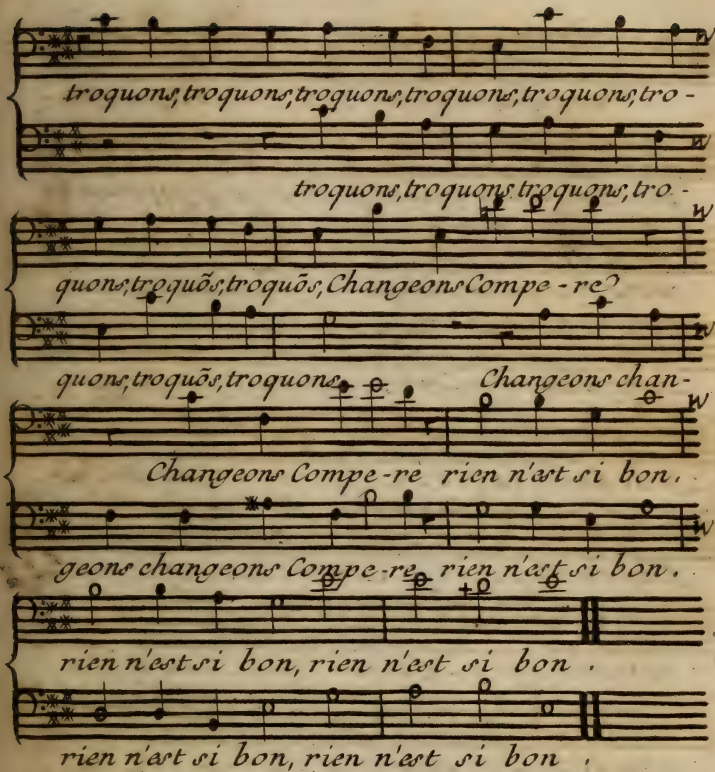 troquons, troquons, troquons, troquons, troquons, tro -
troquons, troquons troquons, tro -
quons, troquõs, troquõs, Changeons Compe - re
quons, troquõs, troquons Changeons chan-
Changeons Compe - re rien n'est si bon.
geons changeons Compe - re rien n'est si bon.
rien n'est si bon, rien n'est si bon .
rien n'est si bon, rien n'est si bon .